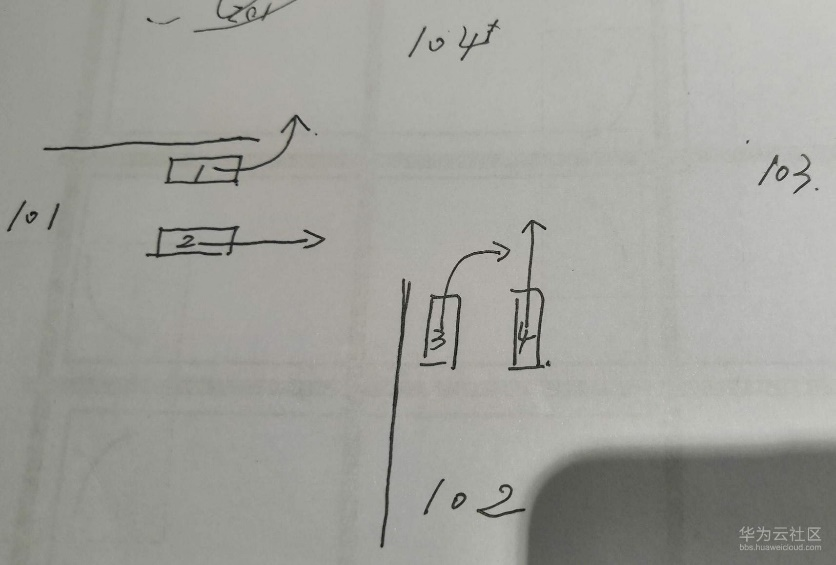 104
103.
1
101
2
3
4
102
华为云社区
bbs.huaweicloud.com